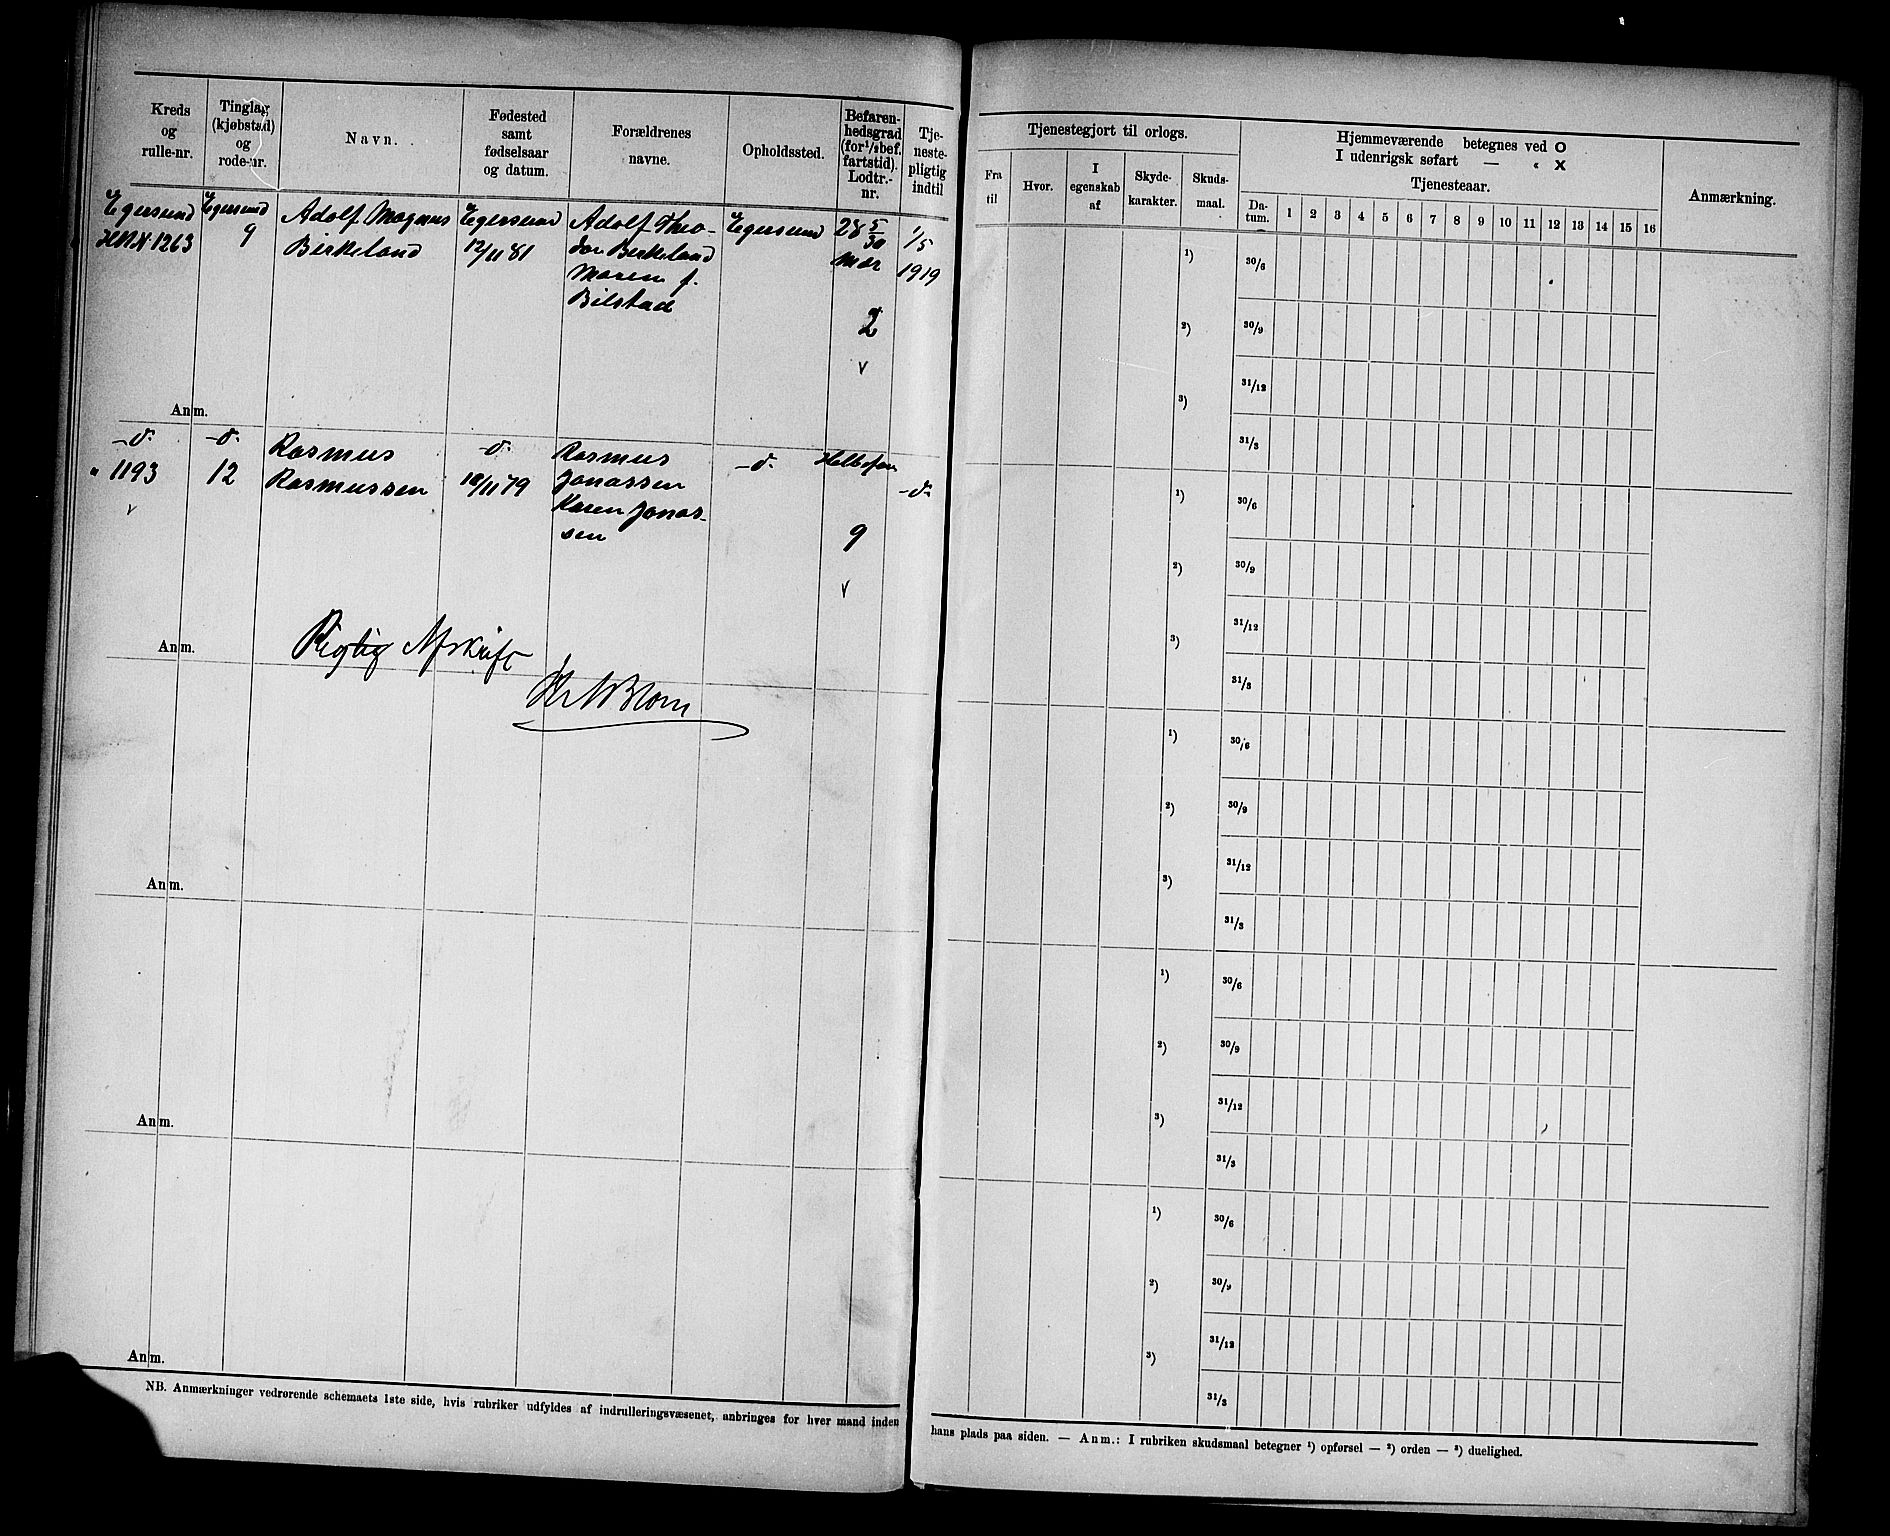 Kreds
og
rulle-nr.
Tinglag
(kjøbstad)
og
rode-nr.
Navn.
Fødested
samt
fødselsaar
og datum.
Forældrenes
navne.
Opholdssted.
Befaren-
hedsgrad
(for 1/2 bef.
fartstid).
Lodtr.-
nr.
Tje-
neste-
pligtig
indtil
Egersund
1263
Egersund
9
Adolf Magnus
Birkeland
Egersund
12/11 81
Adolf Theo-
dor Birkeland
Maren f.
Bilstad
Egersund
28 5/30
Mdr
2
v
1/5
1919
Anm.
-d-
" 1193
v
-d-
12
Rasmus
Rasmussen
-d-
18/11 79
Rasmus
Jonassen
Karen Jonas-
sen
-d-
9
v
-d-
Anm.
Rigtig Afskrift
Blom
Anm.
Anm.
Anm.
NB. Anmærkninger vedrørende schemaets 1ste side, hvis rubriker udfyldes af indrulleringsvæsenet, anbringes for hver mand inden
Tjenestegjort til orlogs.
Fra
til
Hvor.
I
egenskab
af
Skyde-
karakter.
Skuds-
maal.
Hjemmeværende betegnes ved O
I udenrigsk søfart — " X
Tjenesteaar.
Da-
tum.
1 2 3 4 5 6 7 8 9 10 11 12 13 14 15 16
Anmærkning.
1) 30/6
2) 30/9
31/12
3)
31/3
1) 30/6
2) 30/9
31/12
3)
31/3
1) 30/6
2) 30/9
31/12
3)
31/3
1) 30/6
2) 30/9
31/12
3)
31/3
1) 30/6
2) 30/9
31/12
3)
31/3
hans plads paa siden. — Anm.: I rubriken skudsmaal betegner 1) opførsel — 2) orden — 3) duelighed.